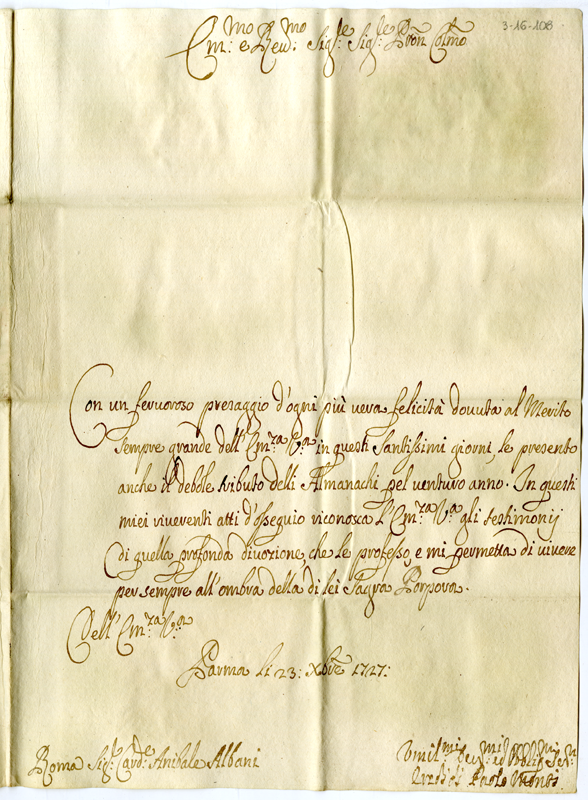 3-16-108
Em:mo e Rev:mo Sig:re Sig:re Pron Colmo
Con un fervoroso presaggio d'ogni più vera felicità dovuta al Merito
sempre grande dell'Em:za V:a in questi Santissimi giorni, le presento
anche il debole tributo delli Almanachi pel venturo anno. In questi
miei riverenti atti d'osseguio riconosca l'Em:za V:a gli testimonij
di quella profonda divozione, che le professo, e mi permetta di vivere
per sempre all'ombra della di lei Sagra Porpora.
Dell'Em:za V:a
Parma li 23: Xbre 1727:
Roma Sig:r Card:e Anibale Albani
Umil:mi Dev:mi ed Obblig:mi Ser:ri
Eredi di Paolo Monti